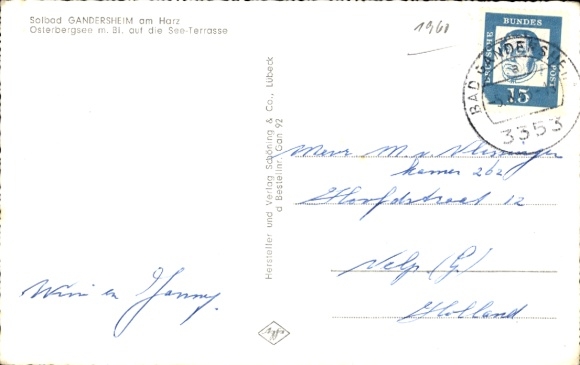 Solbad GANDERSHEIM am Harz
Osterbergsee m. Bl. auf die See-Terrasse
1960
DEUTSCHE BUNDES POST
15
BAD GANDERSHEIM
3353
Hersteller und Verlag Schöning & Co., Lübeck
Bestellnr. Gan 92
Mevr M. v.
kamer 262
Hoofdstraat 12
Velp (G.)
Holland
Wim en